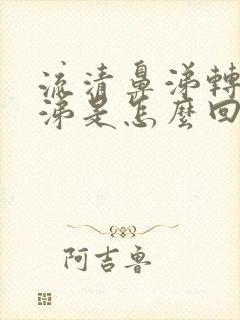 流清鼻涕轉
涕是怎麼回
阿吉魯